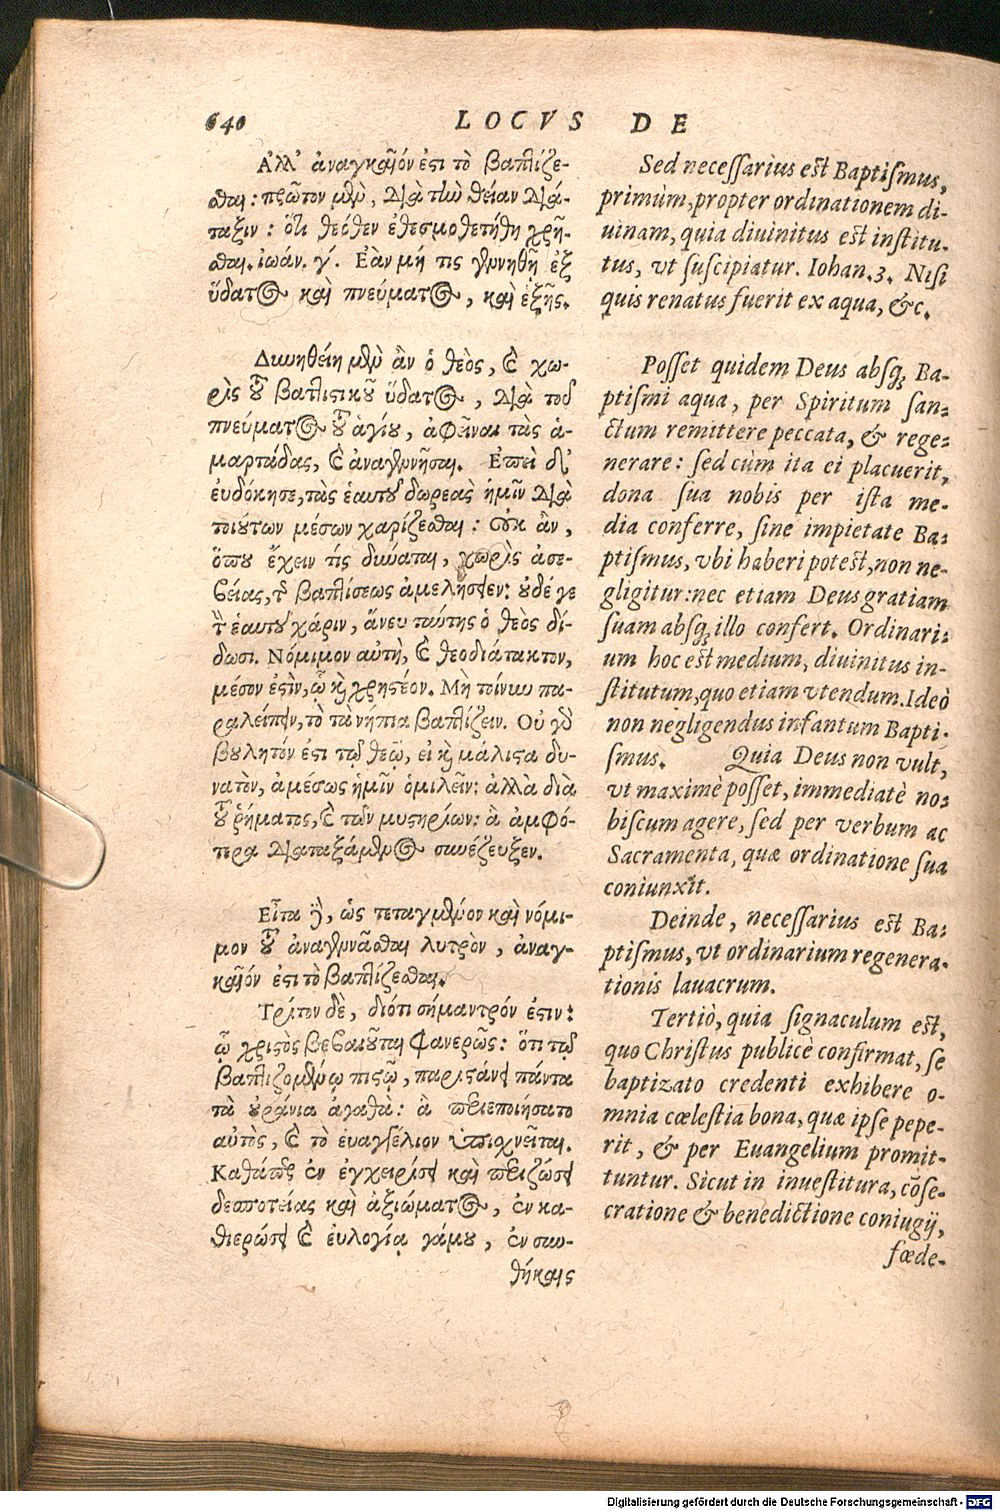 640
LOCVS DE
Ἀλλ' ἀναγκαῖόν ἐστι τὸ βαπτίζε-
σθαι: πρῶτον μὲν, διὰ τὴν θείαν διά-
ταξιν: ὅτι θεόθεν ἐθεσμοθετήθη χρῆ-
σθαι. ἰωάν. γ. Ἐὰν μή τις γεννηθῇ ἐξ
ὕδατος καὶ πνεύματος, καὶ ἑξῆς.
Δυνηθείη μὲν ἂν ὁ θεὸς, καὶ χω-
ρὶς τοῦ βαπτιστικοῦ ὕδατος, διὰ τοῦ
πνεύματος τοῦ ἁγίου, ἀφεῖναι τὰς ἁ-
μαρτάδας, καὶ ἀναγεννῆσαι. Ἐπεὶ δ'
εὐδόκησε, τὰς ἑαυτοῦ δωρεὰς ἡμῖν διὰ
τοιούτων μέσων χαρίζεσθαι: οὐκ ἂν,
ὅπου ἔχειν τίς δύναται, χωρὶς ἀσε-
βείας, τῆς βαπτίσεως ἀμελήσειεν: οὐδέ γε
τὴν ἑαυτοῦ χάριν, ἄνευ ταύτης ὁ θεὸς δί-
δωσι. Νόμιμον αὐτὴ, καὶ θεοδιάτακτον,
μέσον ἐστὶν, ᾧ καὶ χρηστέον. Μὴ τοίνυν πα-
ραλείπειν, τὸ τὰ νήπια βαπτίζειν. Οὐ γὰρ
βουλητόν ἐστι τῷ θεῷ, εἰ καὶ μάλιστα δυ-
νατὸν, ἀμέσως ἡμῖν ὁμιλεῖν: ἀλλὰ διὰ
τοῦ ῥήματος, καὶ τῶν μυστηρίων: ἃ ἀμφό-
τερα διαταξάμενος συνέζευξεν.
Εἶτα γὰρ, ὡς τεταγμένον καὶ νόμι-
μον τοῦ ἀναγεννᾶσθαι λυτρὸν, ἀναγ-
καῖόν ἐστι τὸ βαπτίζεσθαι.
Τρίτον δὲ, διότι σήμαντρόν ἐστιν:
ᾧ χριστὸς βεβαιοῦται φανερῶς: ὅτι τῷ
βαπτιζομένῳ πιστῷ, παριστάνει πάντα
τὰ οὐράνια ἀγαθὰ: ἃ περιεποιήσατο
αὐτὸς, καὶ τὸ εὐαγγέλιον ὑπισχνεῖται.
Καθάπερ ἐν ἐγχειρίσει καὶ περιζώσει
δεσποτείας καὶ ἀξιώματος, ἐν κα-
θιερώσει καὶ εὐλογίᾳ γάμου, ἐν συν-
θήκαις
Sed necessarius est Baptismus,
primùm, propter ordinationem di-
uinam, quia diuinitus est institu-
tus, vt suscipiatur. Iohan. 3. Nisi
quis renatus fuerit ex aqua, &c.
Posset quidem Deus absq; Ba-
ptismi aqua, per Spiritum san-
ctum remittere peccata, & rege-
nerare: sed cùm ita ei placuerit,
dona sua nobis per ista me-
dia conferre, sine impietate Ba-
ptismus, vbi haberi potest, non ne-
gligitur: nec etiam Deus gratiam
suam absq; illo confert. Ordinari-
um hoc est medium, diuinitus in-
stitutum, quo etiam vtendum. Ideò
non negligendus infantum Bapti-
smus. Quia Deus non vult,
vt maximè posset, immediatè no-
biscum agere, sed per verbum ac
Sacramenta, quæ ordinatione sua
coniunxit.
Deinde, necessarius est Ba-
ptismus, vt ordinarium regenera-
tionis lauacrum.
Tertiò, quia signaculum est,
quo Christus publicè confirmat, se
baptizato credenti exhibere o-
mnia cœlestia bona, quæ ipse pepe-
rit, & per Euangelium promit-
tuntur. Sicut in inuestitura, cōse-
cratione & benedictione coniugij,
fœde-
Digitalisierung gefördert durch die Deutsche Forschungsgemeinschaft - DFG